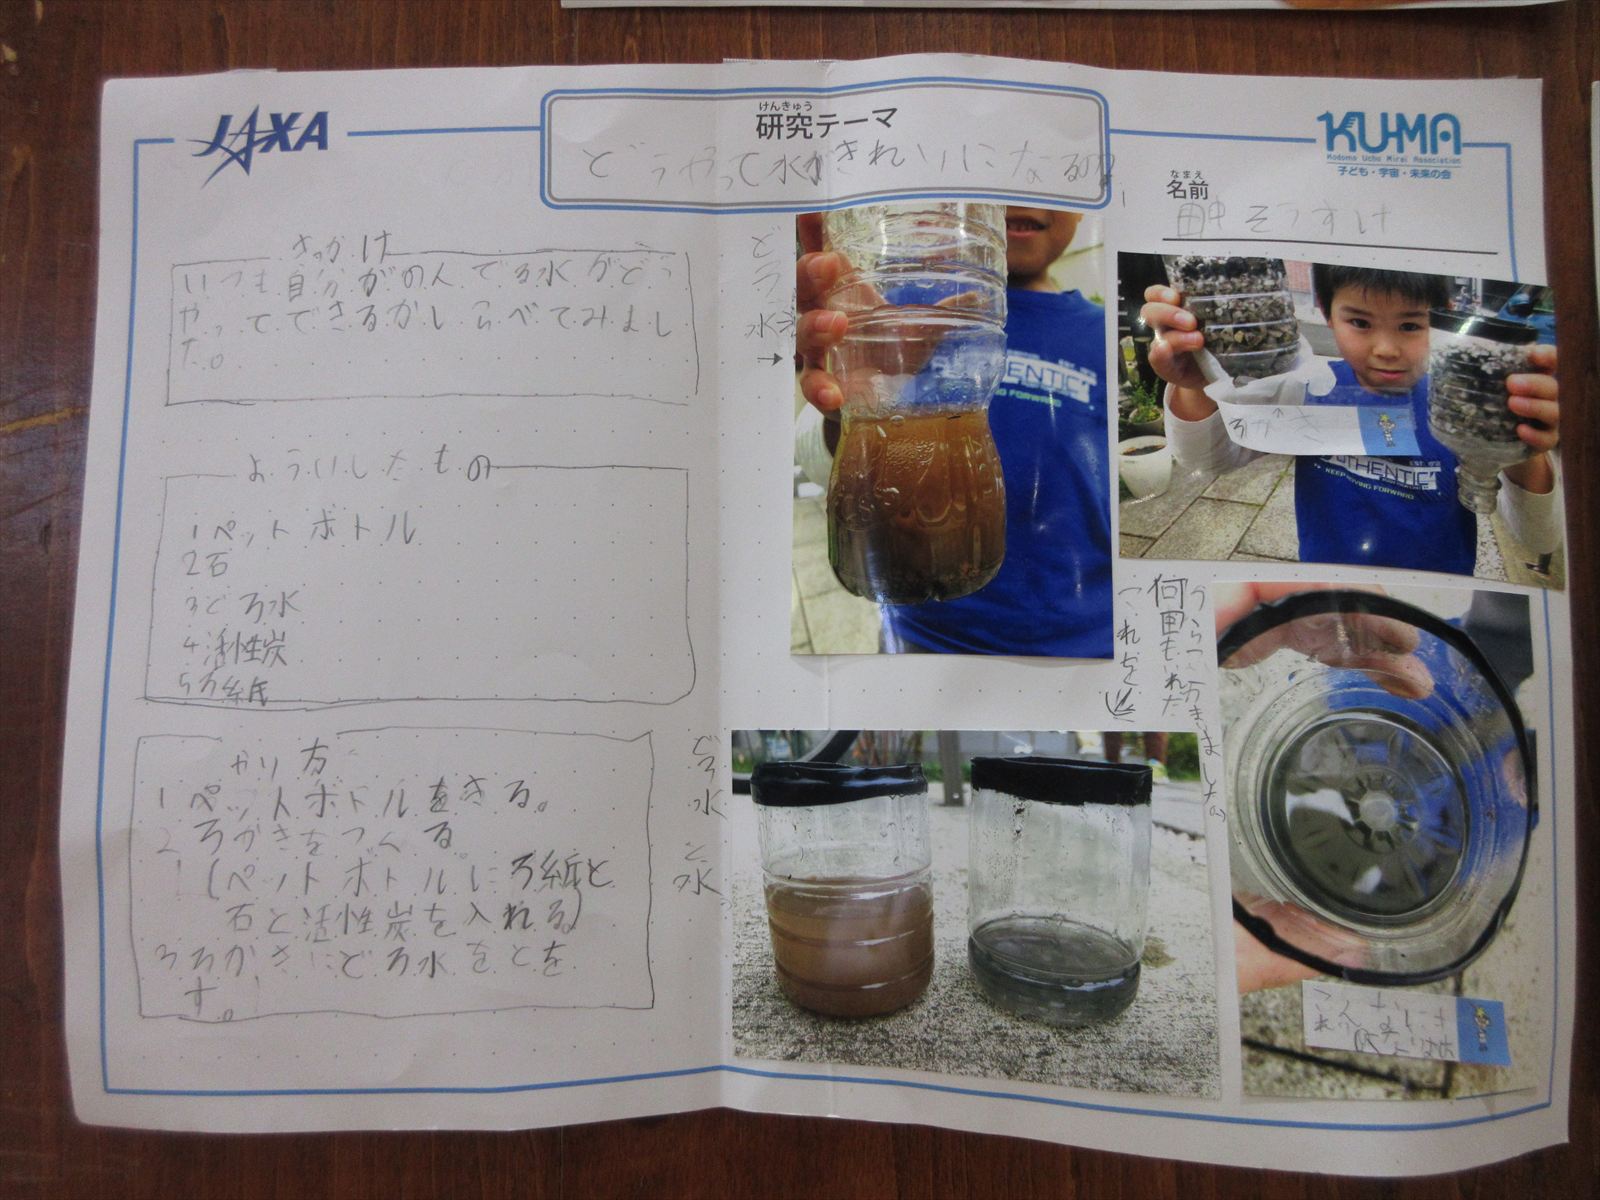 JAXA
けんきゅう
研究テーマ
どうやって水がきれいになるの?
KU-MA
Kodomo Uchu Mirai Association
子ども・宇宙・未来の会
なまえ
名前
田中 そうすけ
きっかけ
いつも自分がのんでる水がどう
やってできるかしらべてみまし
た。
よういしたもの
1ペットボトル
2石
3どろ水
4活性炭
5ろ紙
やり方
1 ペットボトルをきる。
2 ろかきをつくる
(ペットボトルにろ紙と
石と活性炭を入れる)
3 ろかきにどろ水をとを
す。
どろ水
→
ENTIC
G FORWARD
↑
ろかき
AUTHENTIC
KEEP MOVING FORWARD
これを
何回もいれた
うつりました。
どろ水
と
水
こんなにも